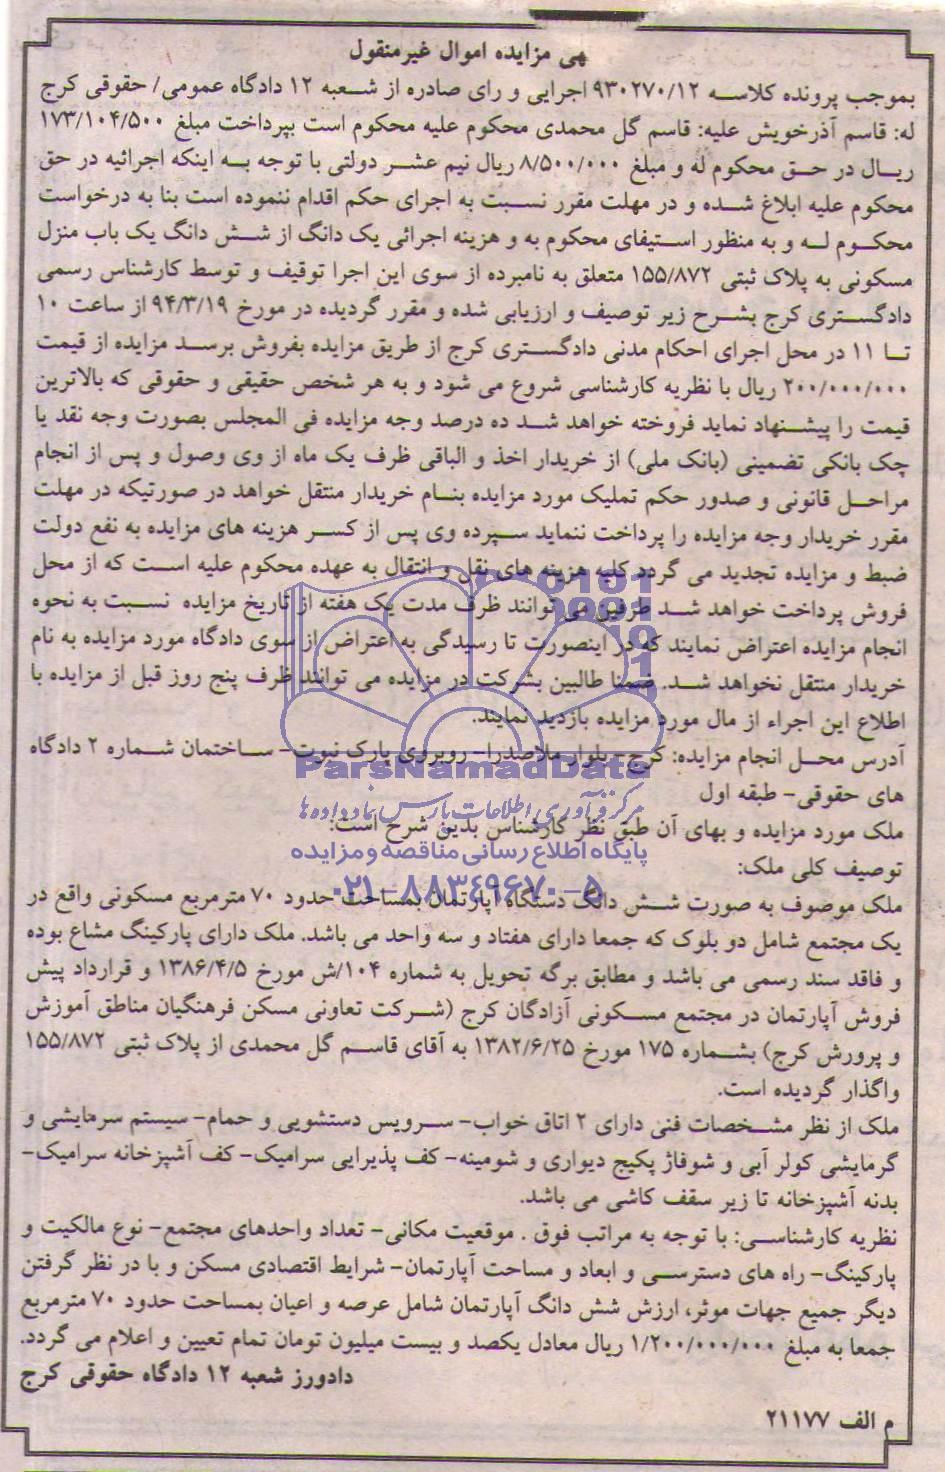 هی مزایده اموال غیرمنقول
بموجب پرونده کلاسه ۹۳۰۲۷۰/۱۲ اجرایی و رای صادره از شعبه ۱۲ دادگاه عمومی/ حقوقی کرج
له: قاسم آذرخویش علیه: قاسم گل محمدی محکوم علیه محکوم است بپرداخت مبلغ ۱۷۳/۱۰۴/۵۰۰
ریال در حق محکوم له و مبلغ ۸/۵۰۰/۰۰۰ ریال نیم عشر دولتی با توجه به اینکه اجرائیه در حق
محکوم علیه ابلاغ شده و در مهلت مقرر نسبت به اجرای حکم اقدام ننموده است بنا به درخواست
محکوم له و به منظور استیفای محکوم به و هزینه اجرائی یک دانگ از شش دانگ یک باب منزل
مسکونی به پلاک ثبتی ۱۵۵/۸۷۲ متعلق به نامبرده از سوی این اجرا توقیف و توسط کارشناس رسمی
دادگستری کرج بشرح زیر توصیف و ارزیابی شده و مقرر گردیده در مورخ ۹۴/۳/۱۹ از ساعت ۱۰
تا ۱۱ در محل اجرای احکام مدنی دادگستری کرج از طریق مزایده بفروش برسد مزایده از قیمت
۲۰۰/۰۰۰/۰۰۰ ریال با نظریه کارشناسی شروع می شود و به هر شخص حقیقی و حقوقی که بالاترین
قیمت را پیشنهاد نماید فروخته خواهد شد ده درصد وجه مزایده فی المجلس بصورت وجه نقد یا
چک بانکی تضمینی (بانک ملی) از خریدار اخذ و الباقی ظرف یک ماه از وی وصول و پس از انجام
مراحل قانونی و صدور حکم تملیک مورد مزایده بنام خریدار منتقل خواهد در صورتیکه در مهلت
مقرر خریدار وجه مزایده را پرداخت ننماید سپرده وی پس از کسر هزینه های مزایده به نفع دولت
ضبط و مزایده تجدید می گردد کلیه هزینه های نقل و انتقال به عهده محکوم علیه است که از محل
فروش پرداخت خواهد شد طرفین می توانند ظرف مدت یک هفته از تاریخ مزایده نسبت به نحوه
انجام مزایده اعتراض نمایند که در اینصورت تا رسیدگی به اعتراض از سوی دادگاه مورد مزایده به نام
خریدار منتقل نخواهد شد. ضمنا طالبین بشرکت در مزایده می توانند ظرف پنج روز قبل از مزایده با
اطلاع این اجراء از مال مورد مزایده بازدید نمایند.
آدرس محل انجام مزایده: کرج- بلوار ملاصدرا- روبروی پارک نبوت- ساختمان شماره ۲ دادگاه
ParsNamadData
های حقوقی- طبقه اول
مرکز فرآوری اطلاعات پارس نماد داده ها
ملک مورد مزایده و بهای آن طبق نظر کارشناس بدین شرح است:
پایگاه اطلاع رسانی مناقصه و مزایده
توصیف کلی ملک:
۰۲۱-۸۸۳۴۹۶۷۰-۵
ملک موصوف به صورت شش دانگ دستگاه آپارتمان بمساحت حدود ۷۰ مترمربع مسکونی واقع در
یک مجتمع شامل دو بلوک که جمعا دارای هفتاد و سه واحد می باشد. ملک دارای پارکینگ مشاع بوده
و فاقد سند رسمی می باشد و مطابق برگه تحویل به شماره ۱۰۴/ش مورخ ۱۳۸۶/۴/۵ و قرارداد پیش
فروش آپارتمان در مجتمع مسکونی آزادگان کرج (شرکت تعاونی مسکن فرهنگیان مناطق آموزش
و پرورش کرج) بشماره ۱۷۵ مورخ ۱۳۸۲/۶/۲۵ به آقای قاسم گل محمدی از پلاک ثبتی ۱۵۵/۸۷۲
واگذار گردیده است.
ملک از نظر مشخصات فنی دارای ۲ اتاق خواب- سرویس دستشویی و حمام- سیستم سرمایشی و
گرمایشی کولر آبی و شوفاژ پکیج دیواری و شومینه- کف پذیرایی سرامیک- کف آشپزخانه سرامیک-
بدنه آشپزخانه تا زیر سقف کاشی می باشد.
نظریه کارشناسی: با توجه به مراتب فوق . موقعیت مکانی- تعداد واحدهای مجتمع- نوع مالکیت و
پارکینگ- راه های دسترسی و ابعاد و مساحت آپارتمان- شرایط اقتصادی مسکن و با در نظر گرفتن
دیگر جمیع جهات موثر، ارزش شش دانگ آپارتمان شامل عرصه و اعیان بمساحت حدود ۷۰ مترمربع
جمعا به مبلغ ۱/۲۰۰/۰۰۰/۰۰۰ ریال معادل یکصد و بیست میلیون تومان تمام تعیین و اعلام می گردد.
دادورز شعبه ۱۲ دادگاه حقوقی کرج
م الف ۲۱۱۷۷